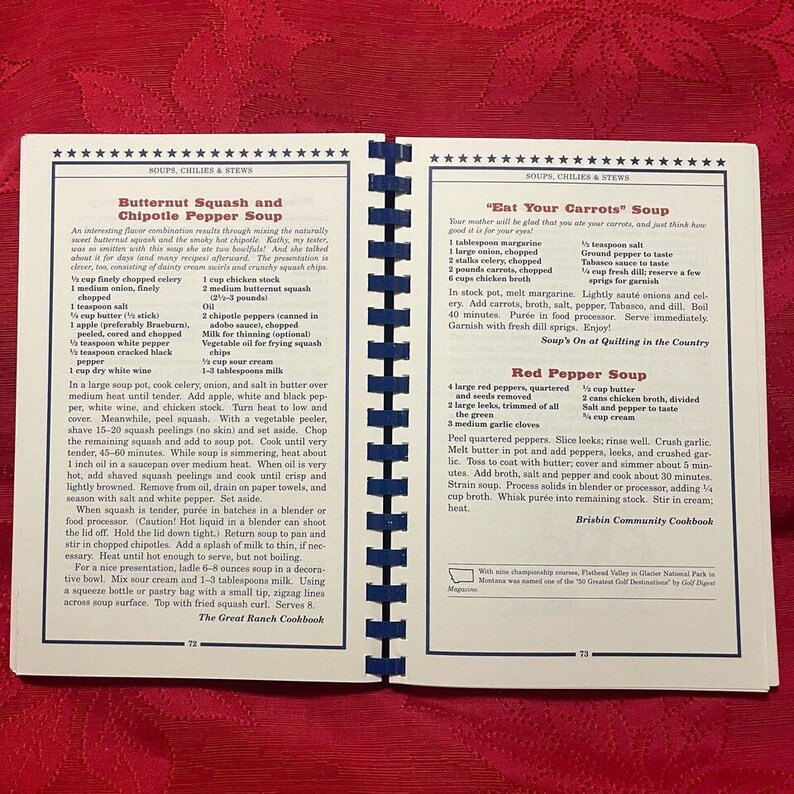 SOUPS, CHILIES & STEWS
Butternut Squash and
Chipotle Pepper Soup
An interesting flavor combination results through mixing the naturally
sweet butternut squash and the smoky hot chipotle. Kathy, my tester,
was so smitten with this soup she ate two bowlfuls! And she talked
about it for days (and many recipes) afterward. The presentation is
clever, too, consisting of dainty cream swirls and crunchy squash chips.
½ cup finely chopped celery
1 medium onion, finely
chopped
1 teaspoon salt
¼ cup butter (½ stick)
1 apple (preferably Braeburn),
peeled, cored and chopped
½ teaspoon white pepper
½ teaspoon cracked black
pepper
1 cup dry white wine
1 cup chicken stock
2 medium butternut squash
(2½–3 pounds)
Oil
2 chipotle peppers (canned in
adobo sauce), chopped
Milk for thinning (optional)
Vegetable oil for frying squash
chips
½ cup sour cream
1–3 tablespoons milk
In a large soup pot, cook celery, onion, and salt in butter over
medium heat until tender. Add apple, white and black pep-
per, white wine, and chicken stock. Turn heat to low and
cover. Meanwhile, peel squash. With a vegetable peeler,
shave 15–20 squash peelings (no skin) and set aside. Chop
the remaining squash and add to soup pot. Cook until very
tender, 45–60 minutes. While soup is simmering, heat about
1 inch oil in a saucepan over medium heat. When oil is very
hot, add shaved squash peelings and cook until crisp and
lightly browned. Remove from oil, drain on paper towels, and
season with salt and white pepper. Set aside.
When squash is tender, purée in batches in a blender or
food processor. (Caution! Hot liquid in a blender can shoot
the lid off. Hold the lid down tight.) Return soup to pan and
stir in chopped chipotles. Add a splash of milk to thin, if nec-
essary. Heat until hot enough to serve, but not boiling.
For a nice presentation, ladle 6–8 ounces soup in a decora-
tive bowl. Mix sour cream and 1–3 tablespoons milk. Using
a squeeze bottle or pastry bag with a small tip, zigzag lines
across soup surface. Top with fried squash curl. Serves 8.
The Great Ranch Cookbook
72
SOUPS, CHILIES & STEWS
"Eat Your Carrots" Soup
Your mother will be glad that you ate your carrots, and just think how
good it is for your eyes!
1 tablespoon margarine
1 large onion, chopped
2 stalks celery, chopped
2 pounds carrots, chopped
6 cups chicken broth
½ teaspoon salt
Ground pepper to taste
Tabasco sauce to taste
¼ cup fresh dill; reserve a few
sprigs for garnish
In stock pot, melt margarine. Lightly sauté onions and cel-
ery. Add carrots, broth, salt, pepper, Tabasco, and dill. Boil
40 minutes. Purée in food processor. Serve immediately.
Garnish with fresh dill sprigs. Enjoy!
Soup's On at Quilting in the Country
Red Pepper Soup
4 large red peppers, quartered
and seeds removed
2 large leeks, trimmed of all
the green
3 medium garlic cloves
½ cup butter
2 cans chicken broth, divided
Salt and pepper to taste
¾ cup cream
Peel quartered peppers. Slice leeks; rinse well. Crush garlic.
Melt butter in pot and add peppers, leeks, and crushed gar-
lic. Toss to coat with butter; cover and simmer about 5 min-
utes. Add broth, salt and pepper and cook about 30 minutes.
Strain soup. Process solids in blender or processor, adding ¼
cup broth. Whisk purée into remaining stock. Stir in cream;
heat.
Brisbin Community Cookbook
With nine championship courses, Flathead Valley in Glacier National Park in
Montana was named one of the "50 Greatest Golf Destinations" by Golf Digest
Magazine.
73